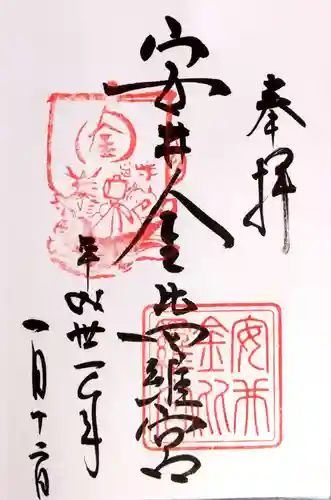 奉拝
安井金比羅宮
平成卅一年
一月十六日
金
安井金比羅宮